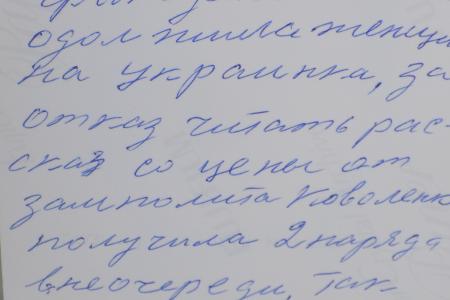 одолжила женщи
на украинка, за
отказ читать рас-
сказ со цены от
замполита Коваленк
получила 2 наряда
внеочереди, так